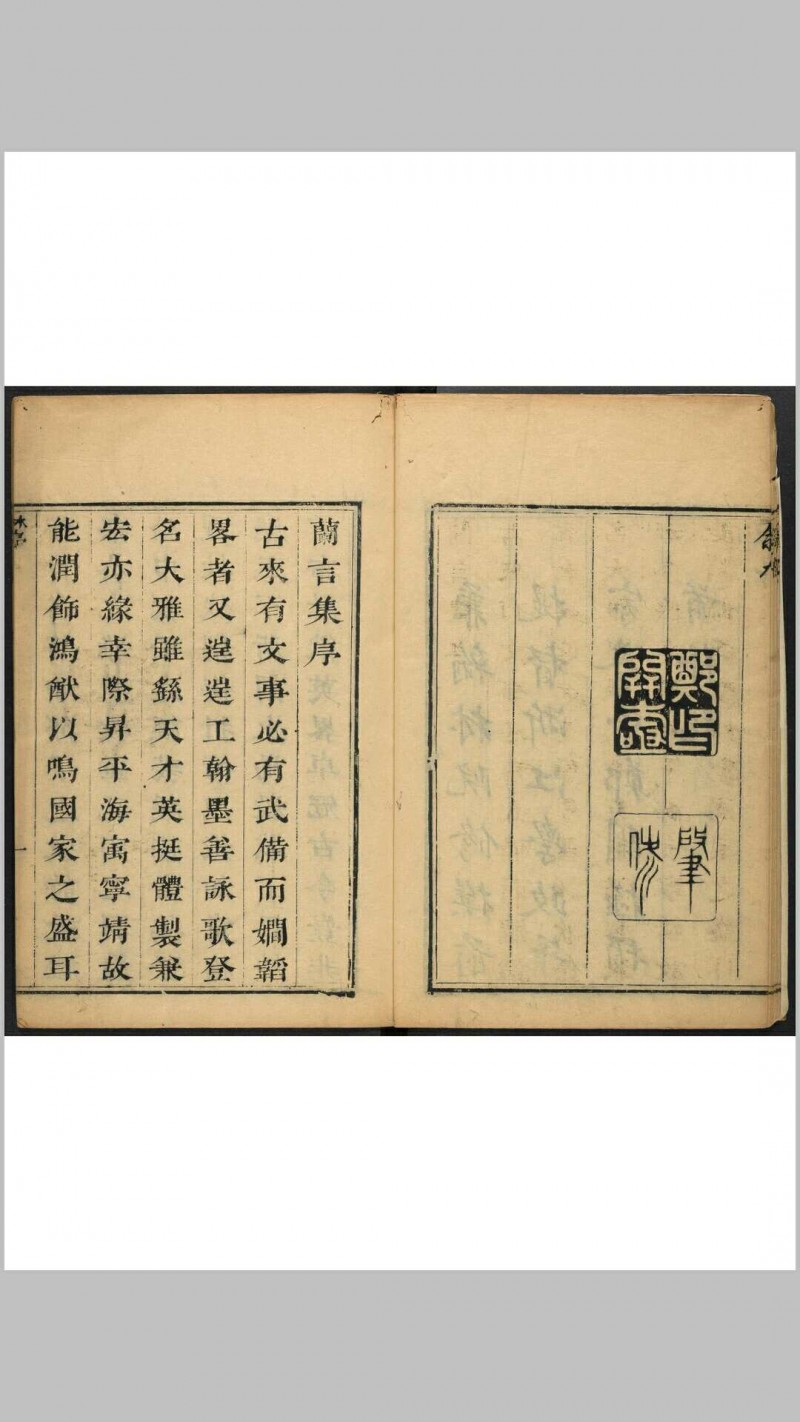 鄭印開極
肇修
蘭言集序
古來有文事必有武備而嫺韜
畧者又𨓹𨓹工翰墨善詠歌登
名大雅雖繇天才英挺體製兼
宏亦緣幸際昇平海寓寧靖故
能潤飾鴻猷以鳴國家之盛耳
一